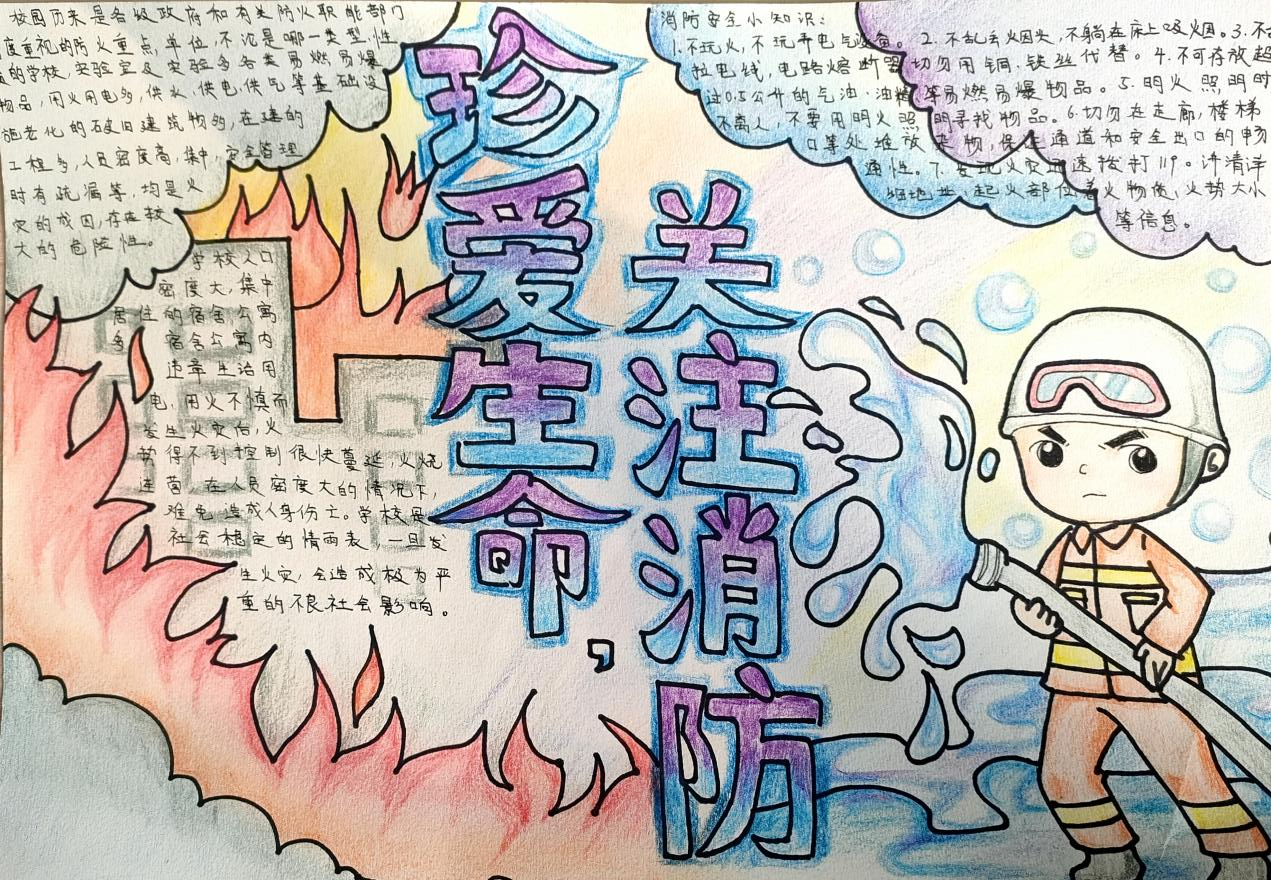 校园历来是各级政府和有关防火职能部门
度重视的防火重点单位,不论是哪一类型性
的学校,实验室及实验多各类易燃易爆
物品,用火用电多,供水、供电、供气等基础设
施老化的破旧建筑物多,在建的
工程多,人员密度高,集中,安全管理
时有疏漏等,均是火
灾的成因,存在较
大的危险性。
学校人口
密度大,集中
居住的宿舍公寓
多,宿舍公寓内
违章生活用
电、用火不慎而
发生火灾后,火
势得不到控制很快蔓延,火烧
连营,在人员密度大的情况下,
难免造成人身伤亡。学校是
社会稳定的情雨表,一旦发
生火灾,会造成极为严
重的不良社会影响。
珍爱生命,
关注消防
消防安全小知识:
1.不玩火,不玩弄电气设备。2.不乱丢火因头,不躺在床上吸烟。3.不
拉电线,电路熔断器切勿用铜、铁丝代替。4.不可存放超
过0.5公升的气油、油精等易燃易爆物品。5.明火照明时
不离人,不要用明火照明寻找物品。6.切勿在走廊、楼梯
口等处堆放杂物,保证通道和安全出口的畅
通性。7.发现火灾迅速拨打119。讲清详
细地址、起火部位着火物质、火势大小
等信息。